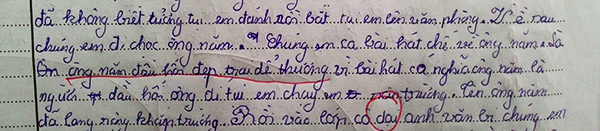 đã không biết tưởng tui em đánh rồi bắt tui em lên văn phòng. Về sau
chúng em đi chọc ông năm. Chúng em ca bài hát chế về ông năm. Là
ông năm đầu hói đẹp trai dễ thương vì bài hát có nghĩa ông năm là
người đầu hói ông đi tui em chạy em trường. Lên ông năm
đa lang năng khản trường. Rồi vào lớp cô dạy anh văn lên chúng em